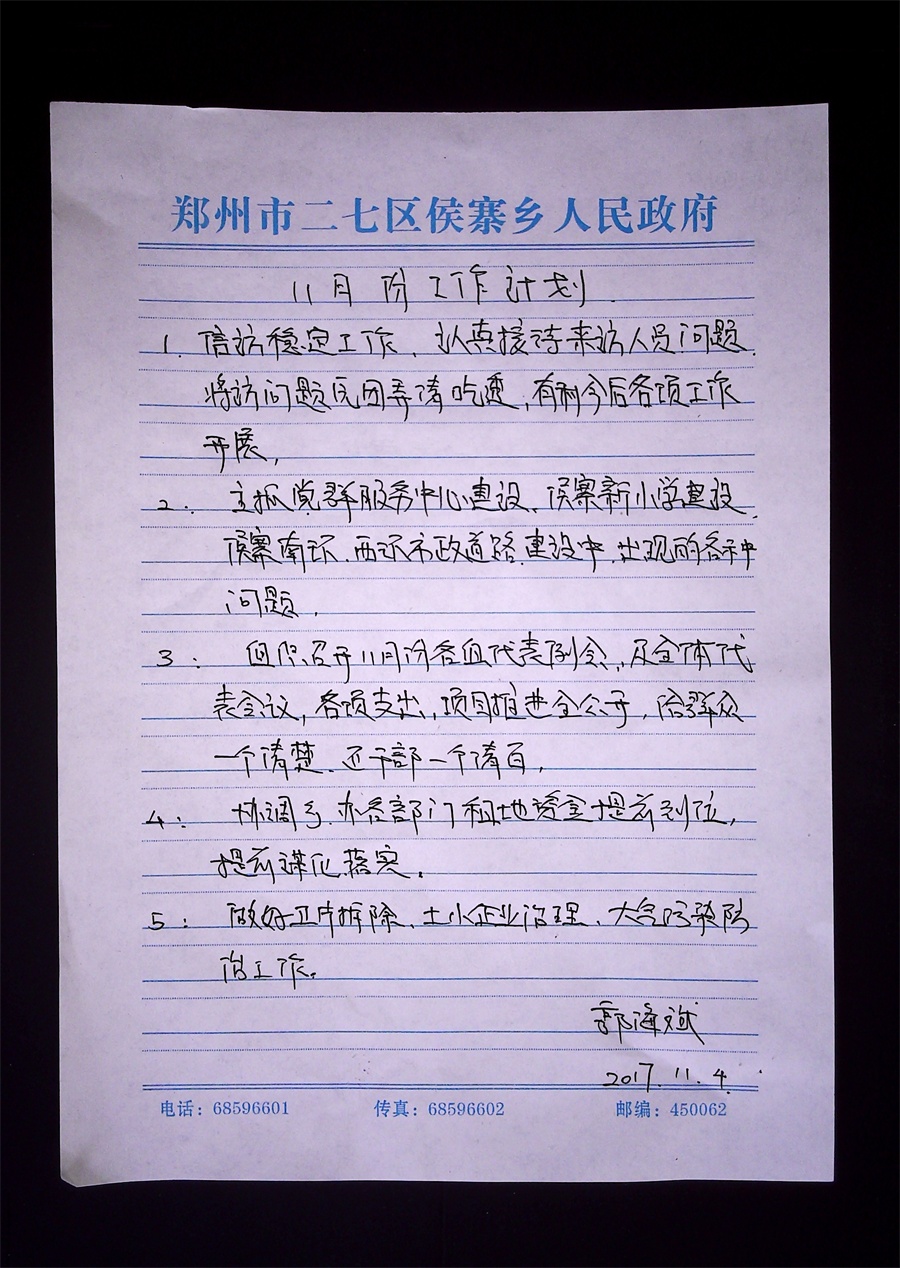 郑州市二七区侯寨乡人民政府
11月份工作计划.
1. 信访稳定工作、认真接待来访人员问题.
将访问题原因弄清吃透,有利今后各项工作
开展,
2. 主抓党群服务中心建设、侯寨新小学建设、
侯寨南环、西环市政道路建设中,出现的各种
问题.
3: 组织召开11月份各组代表例会、及全体代
表会议,各项支出,项目推进全公开,给群众
一个清楚.还干部一个清白,
4: 协调乡.办各部门租地资金提前到位,
提前谋化落实.
5: 做好卫片拆除、土小企业治理、大气污染防
治工作。
郭海斌
2017.11.4.
电话：68596601 传真：68596602 邮编：450062